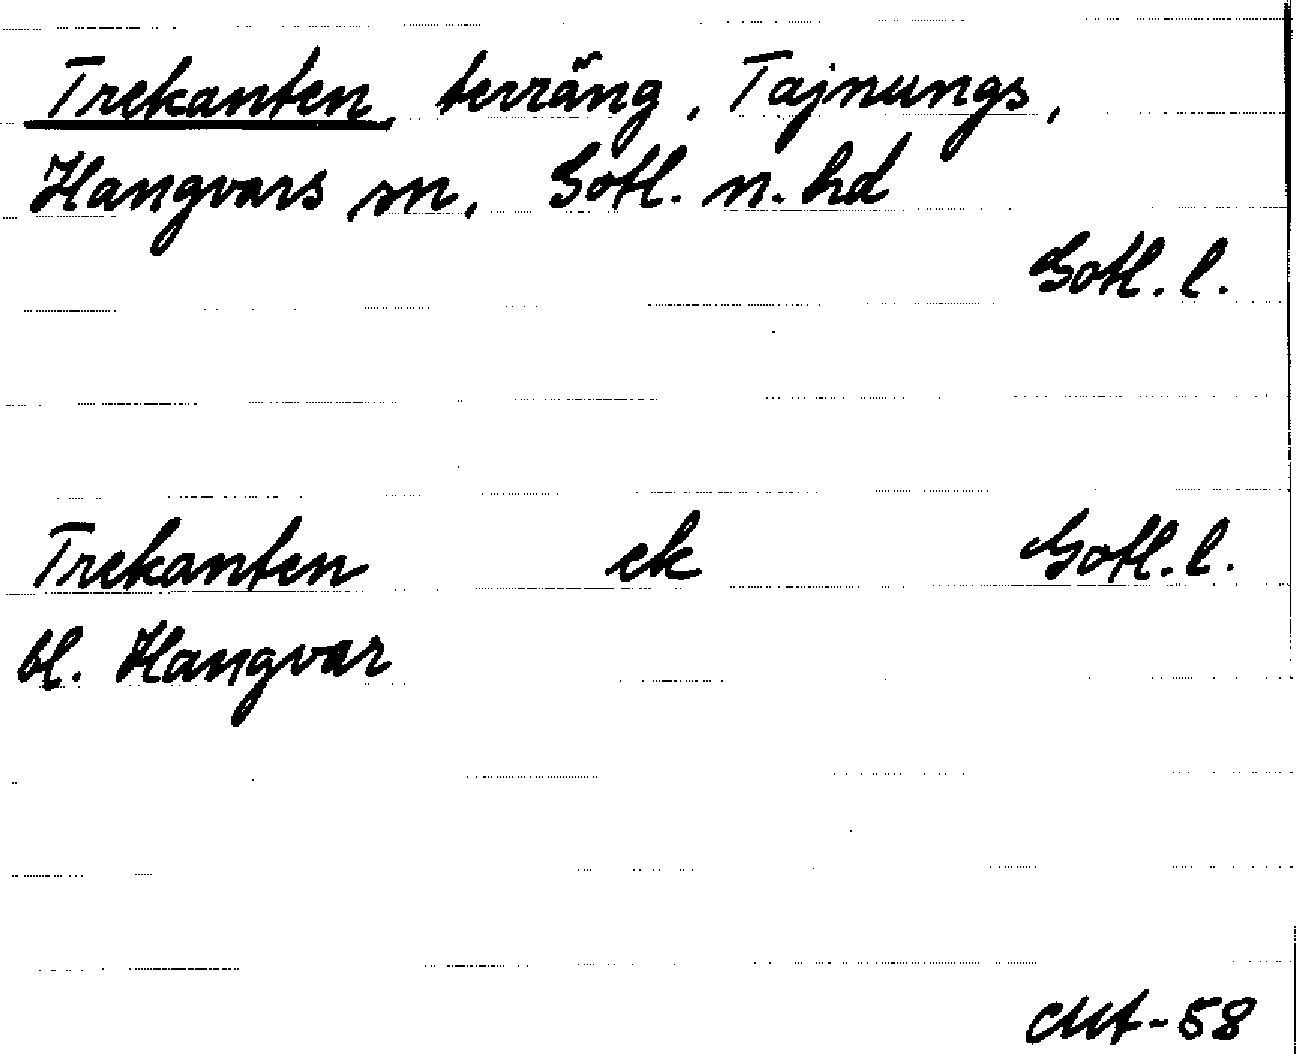 Trekanten, terräng, Tajnungs,
Hangvars sn, Gotl. n. hd
Gotl. l.
Trekanten ek Gotl. l.
bl. Hangvar
-58